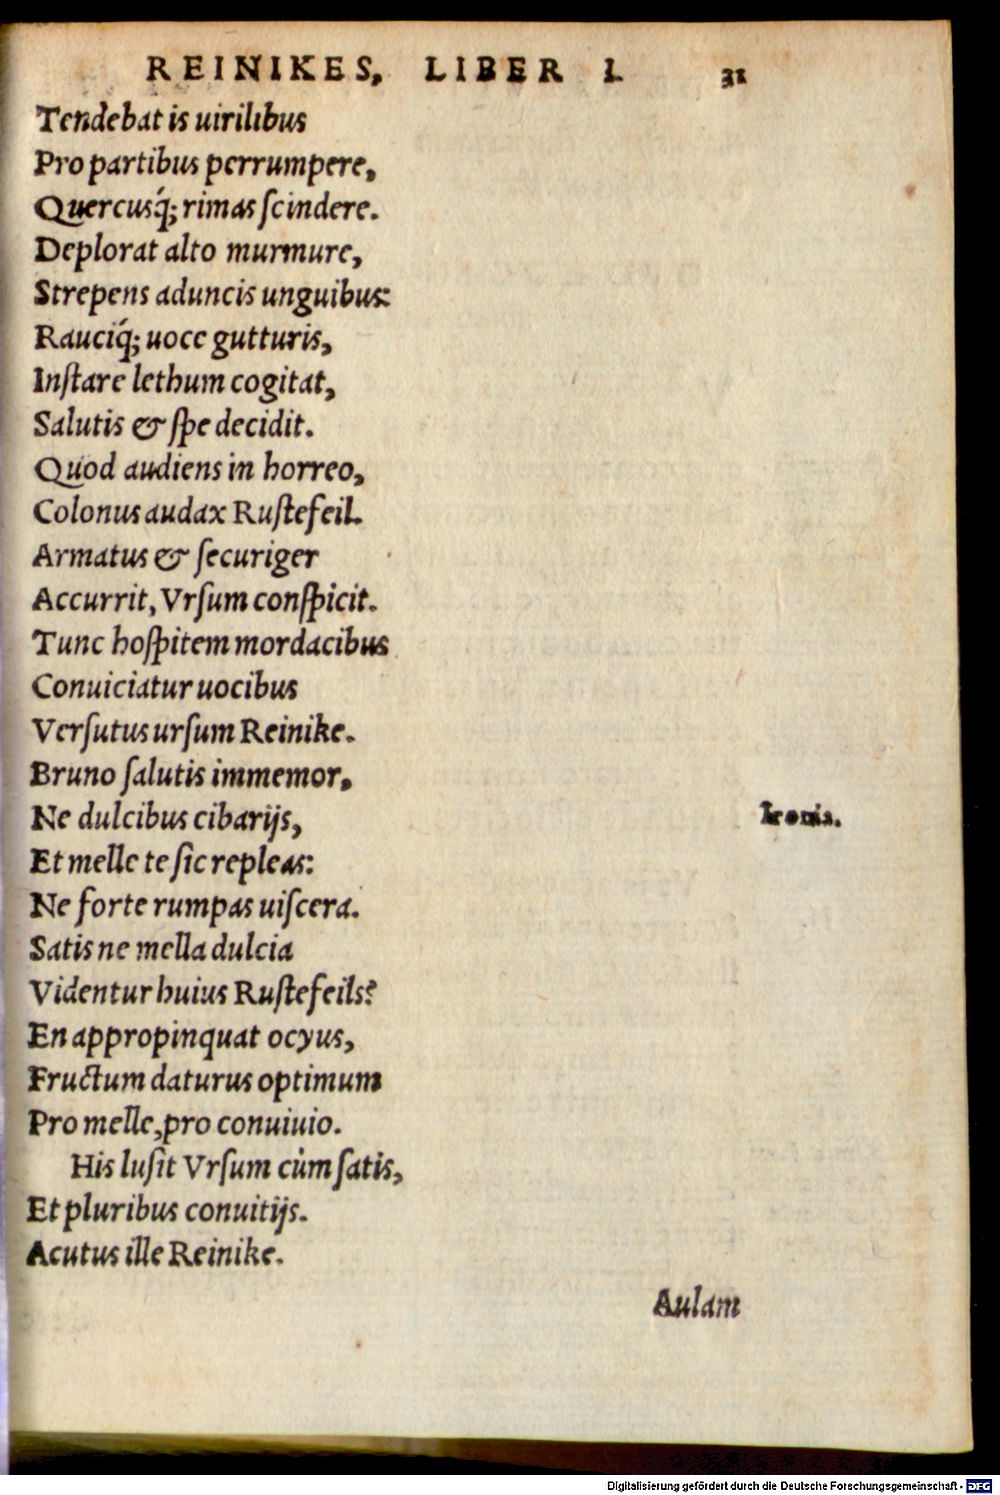 REINIKES, LIBER I. 31
Tendebat is uirilibus
Pro partibus perrumpere,
Quercusq́; rimas ſcindere.
Deplorat alto murmure,
Strepens aduncis unguibus:
Rauciq́; uoce gutturis,
Inſtare lethum cogitat,
Salutis & ſpe decidit.
Quod audiens in horreo,
Colonus audax Ruſtefeil.
Armatus & ſecuriger
Accurrit, Vrſum conſpicit.
Tunc hoſpitem mordacibus
Conuiciatur uocibus
Verſutus urſum Reinike.
Bruno ſalutis immemor,
Ne dulcibus cibarijs,
Ironia.
Et melle te ſic repleas:
Ne forte rumpas uiſcera.
Satis ne mella dulcia
Videntur huius Ruſtefeils?
En appropinquat ocyus,
Fructum daturus optimum
Pro melle, pro conuiuio.
His luſit Vrſum cùm ſatis,
Et pluribus conuitijs.
Acutus ille Reinike.
Aulam
Digitalisierung gefördert durch die Deutsche Forschungsgemeinschaft - DFG